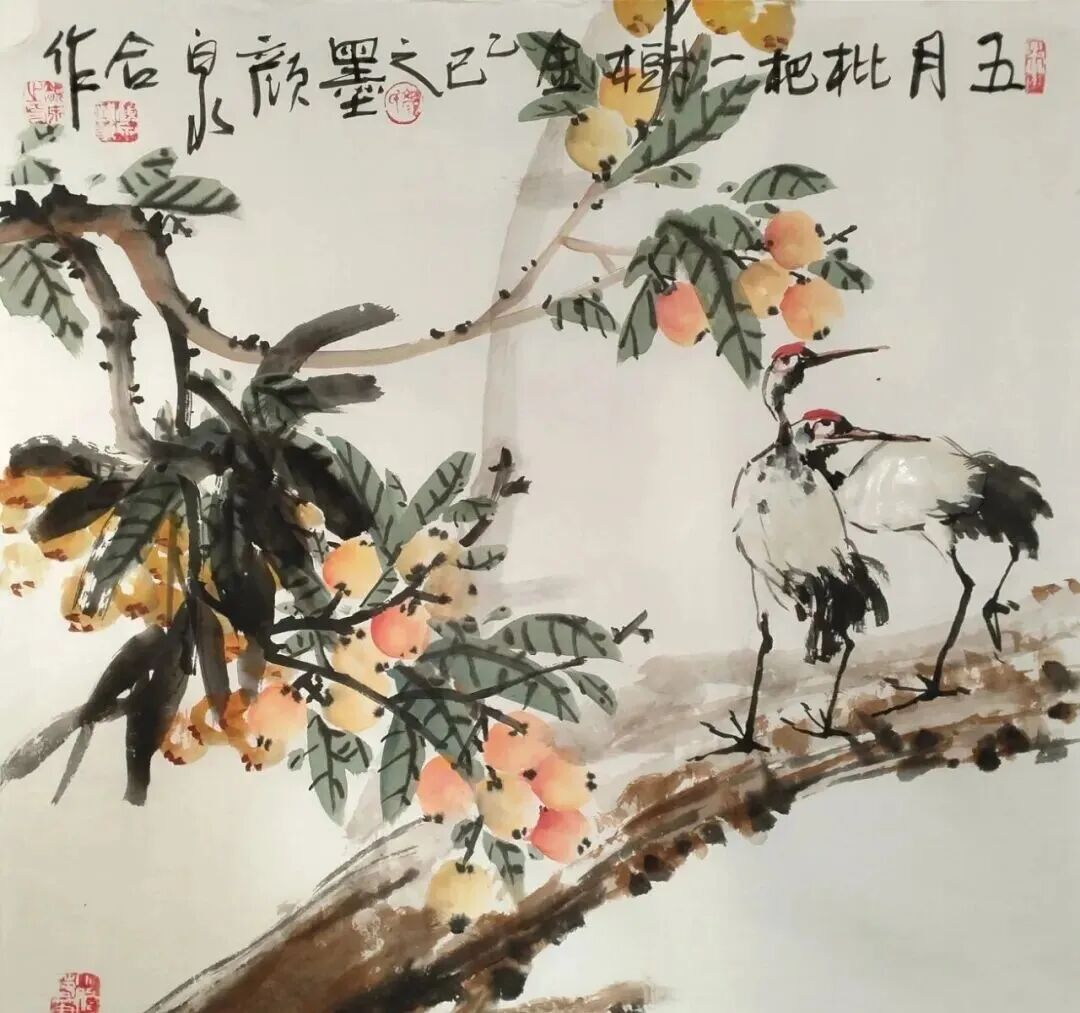 五月枇杷一樹金乙巳之墨顏泉合作